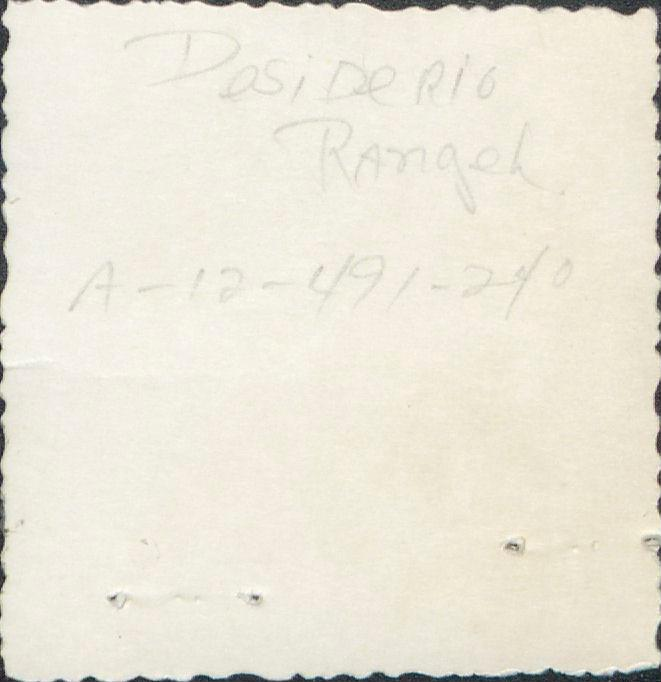 Desiderio
Rangel
A-12-491-240